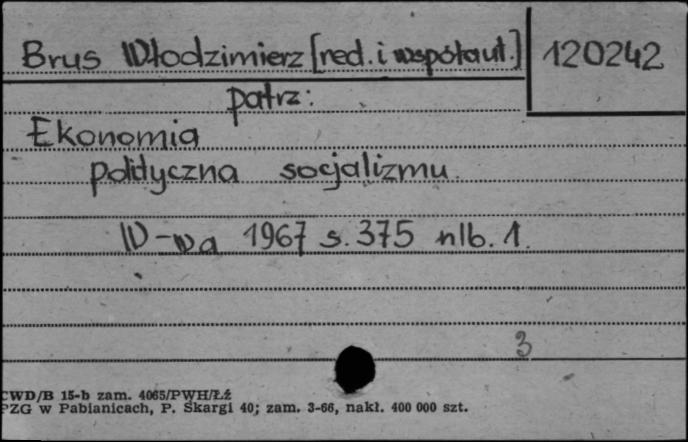 Brus Włodzimierz [red. i współaut.] 120242
patrz:
Ekonomia
polityczna socjalizmu.
W-wa 1967 s. 375 nlb. 1.
3
CWD/B 15-b zam. 4065/PWH/Łź
PZG w Pabianicach, P. Skargi 40; zam. 3-66, nakł. 400 000 szt.